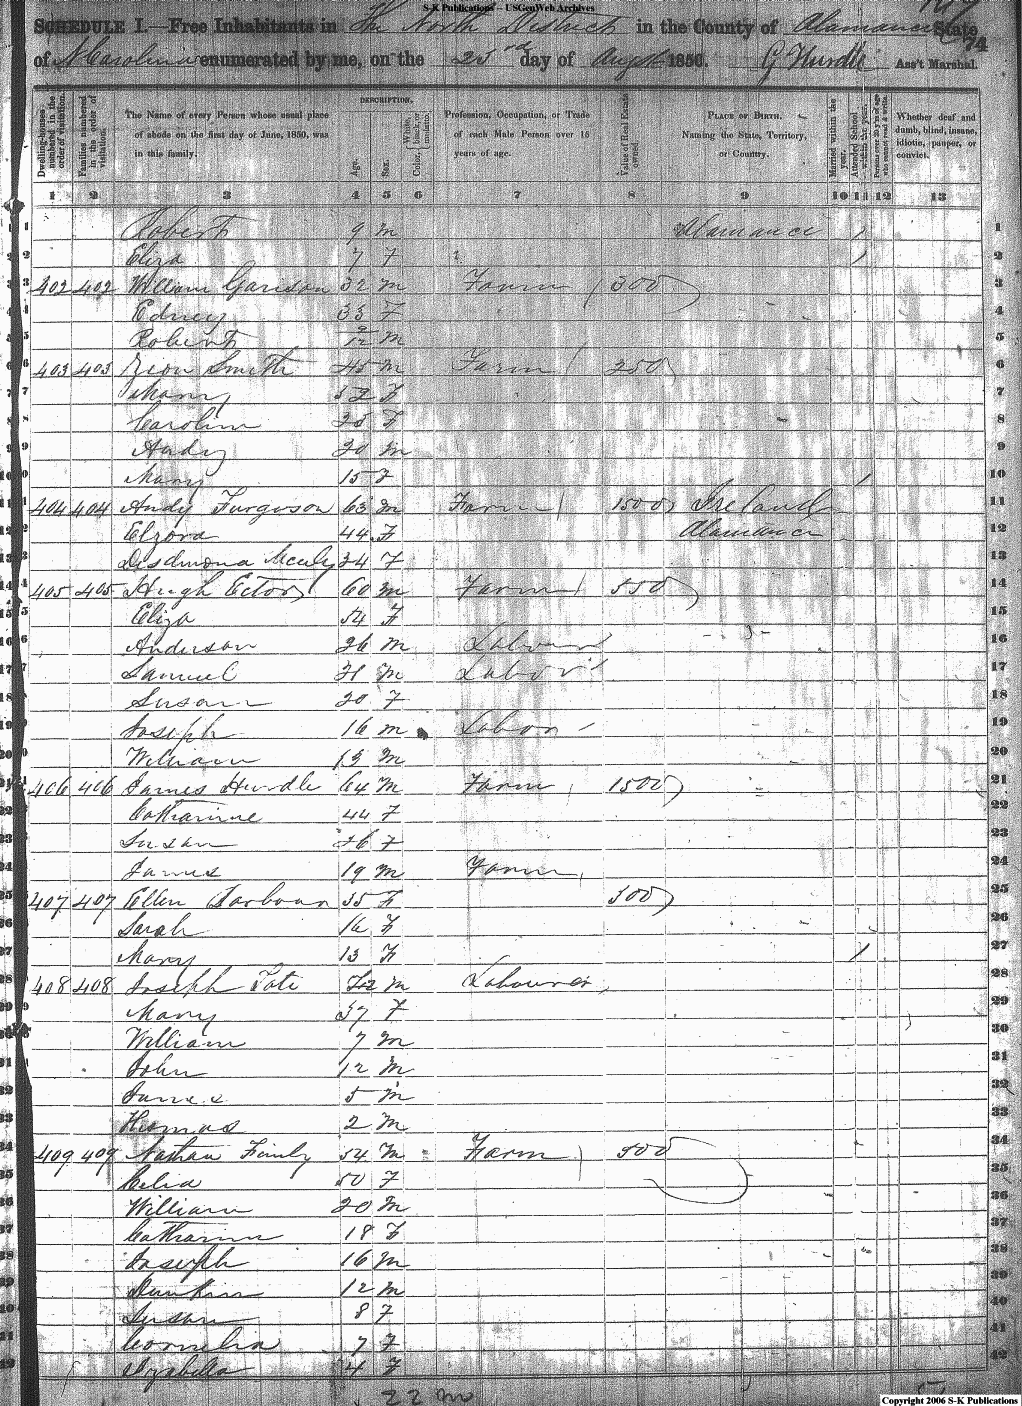 S-K Publications -- USGenWeb Archives
SCHEDULE I.—Free Inhabitants in The North District in the County of Alamance State 74
of N Carolina enumerated by me, on the 23rd day of Augst 1850. G Hurdle Ass't Marshal.
Dwelling-houses numbered in the order of visitation. Families numbered in the order of visitation. The Name of every Person whose usual place of abode on the first day of June, 1850, was in this family. DESCRIPTION. Age. Sex. White, black, or mulatto. Color, Profession, Occupation, or Trade of each Male Person over 15 years of age. Value of Real Estate owned. PLACE OF BIRTH. Naming the State, Territory, or Country. Married within the year. Attended School within the year. Persons over 20 y'rs of age who cannot read & write. Whether deaf and dumb, blind, insane, idiotic, pauper, or convict.
1 2 3 4 5 6 7 8 9 10 11 12 13
1 Robert 9 m Alamance / 1
2 Eliza 7 F / 2
3 402 402 William Garison 32 m Farm 300 3
4 Edney 33 F 4
5 Robert 9/12 m 5
6 403 403 Smith 45 m Farm 250 6
7 Mary 52 F 7
8 Carolin 25 F 8
9 Andy 20 m 9
10 Mary 15 F / 10
11 404 404 Andy Furguson 63 m Farm 1500 Ireland 11
12 Elzora 44 F Alamance 12
13 Desdmona 34 F 13
14 405 405 Hugh Ector 60 m Farm 550 14
15 Eliza 54 F 15
16 Anderson 26 m Labour 16
17 Samuel 21 m Labor 17
18 Susan 20 F 18
19 Joseph 16 m Labor 19
20 William 13 m 20
21 406 406 James Hurdle 64 m Farm 1500 21
22 Catharine 44 F 22
23 Susan 26 F 23
24 James 19 m Farm 24
25 407 407 Ellen 35 F 300 25
26 Sarah 16 F 26
27 Mary 13 F / 27
28 408 408 Joseph Tate 42 m Labourer 28
29 Mary 37 F 29
30 William 7 m 30
31 John 12 m 31
32 James 5 m 32
33 Thomas 2 m 33
34 409 409 Nathan 54 m Farm 500 34
35 Celia 50 F 35
36 William 20 m 36
37 Catharin 18 F 37
38 Joseph 16 m 38
39 12 m 39
40 Susan 8 F 40
41 Cornelia 7 F 41
42 Izabella 4 F 42
22 m
Copyright 2006 S-K Publications